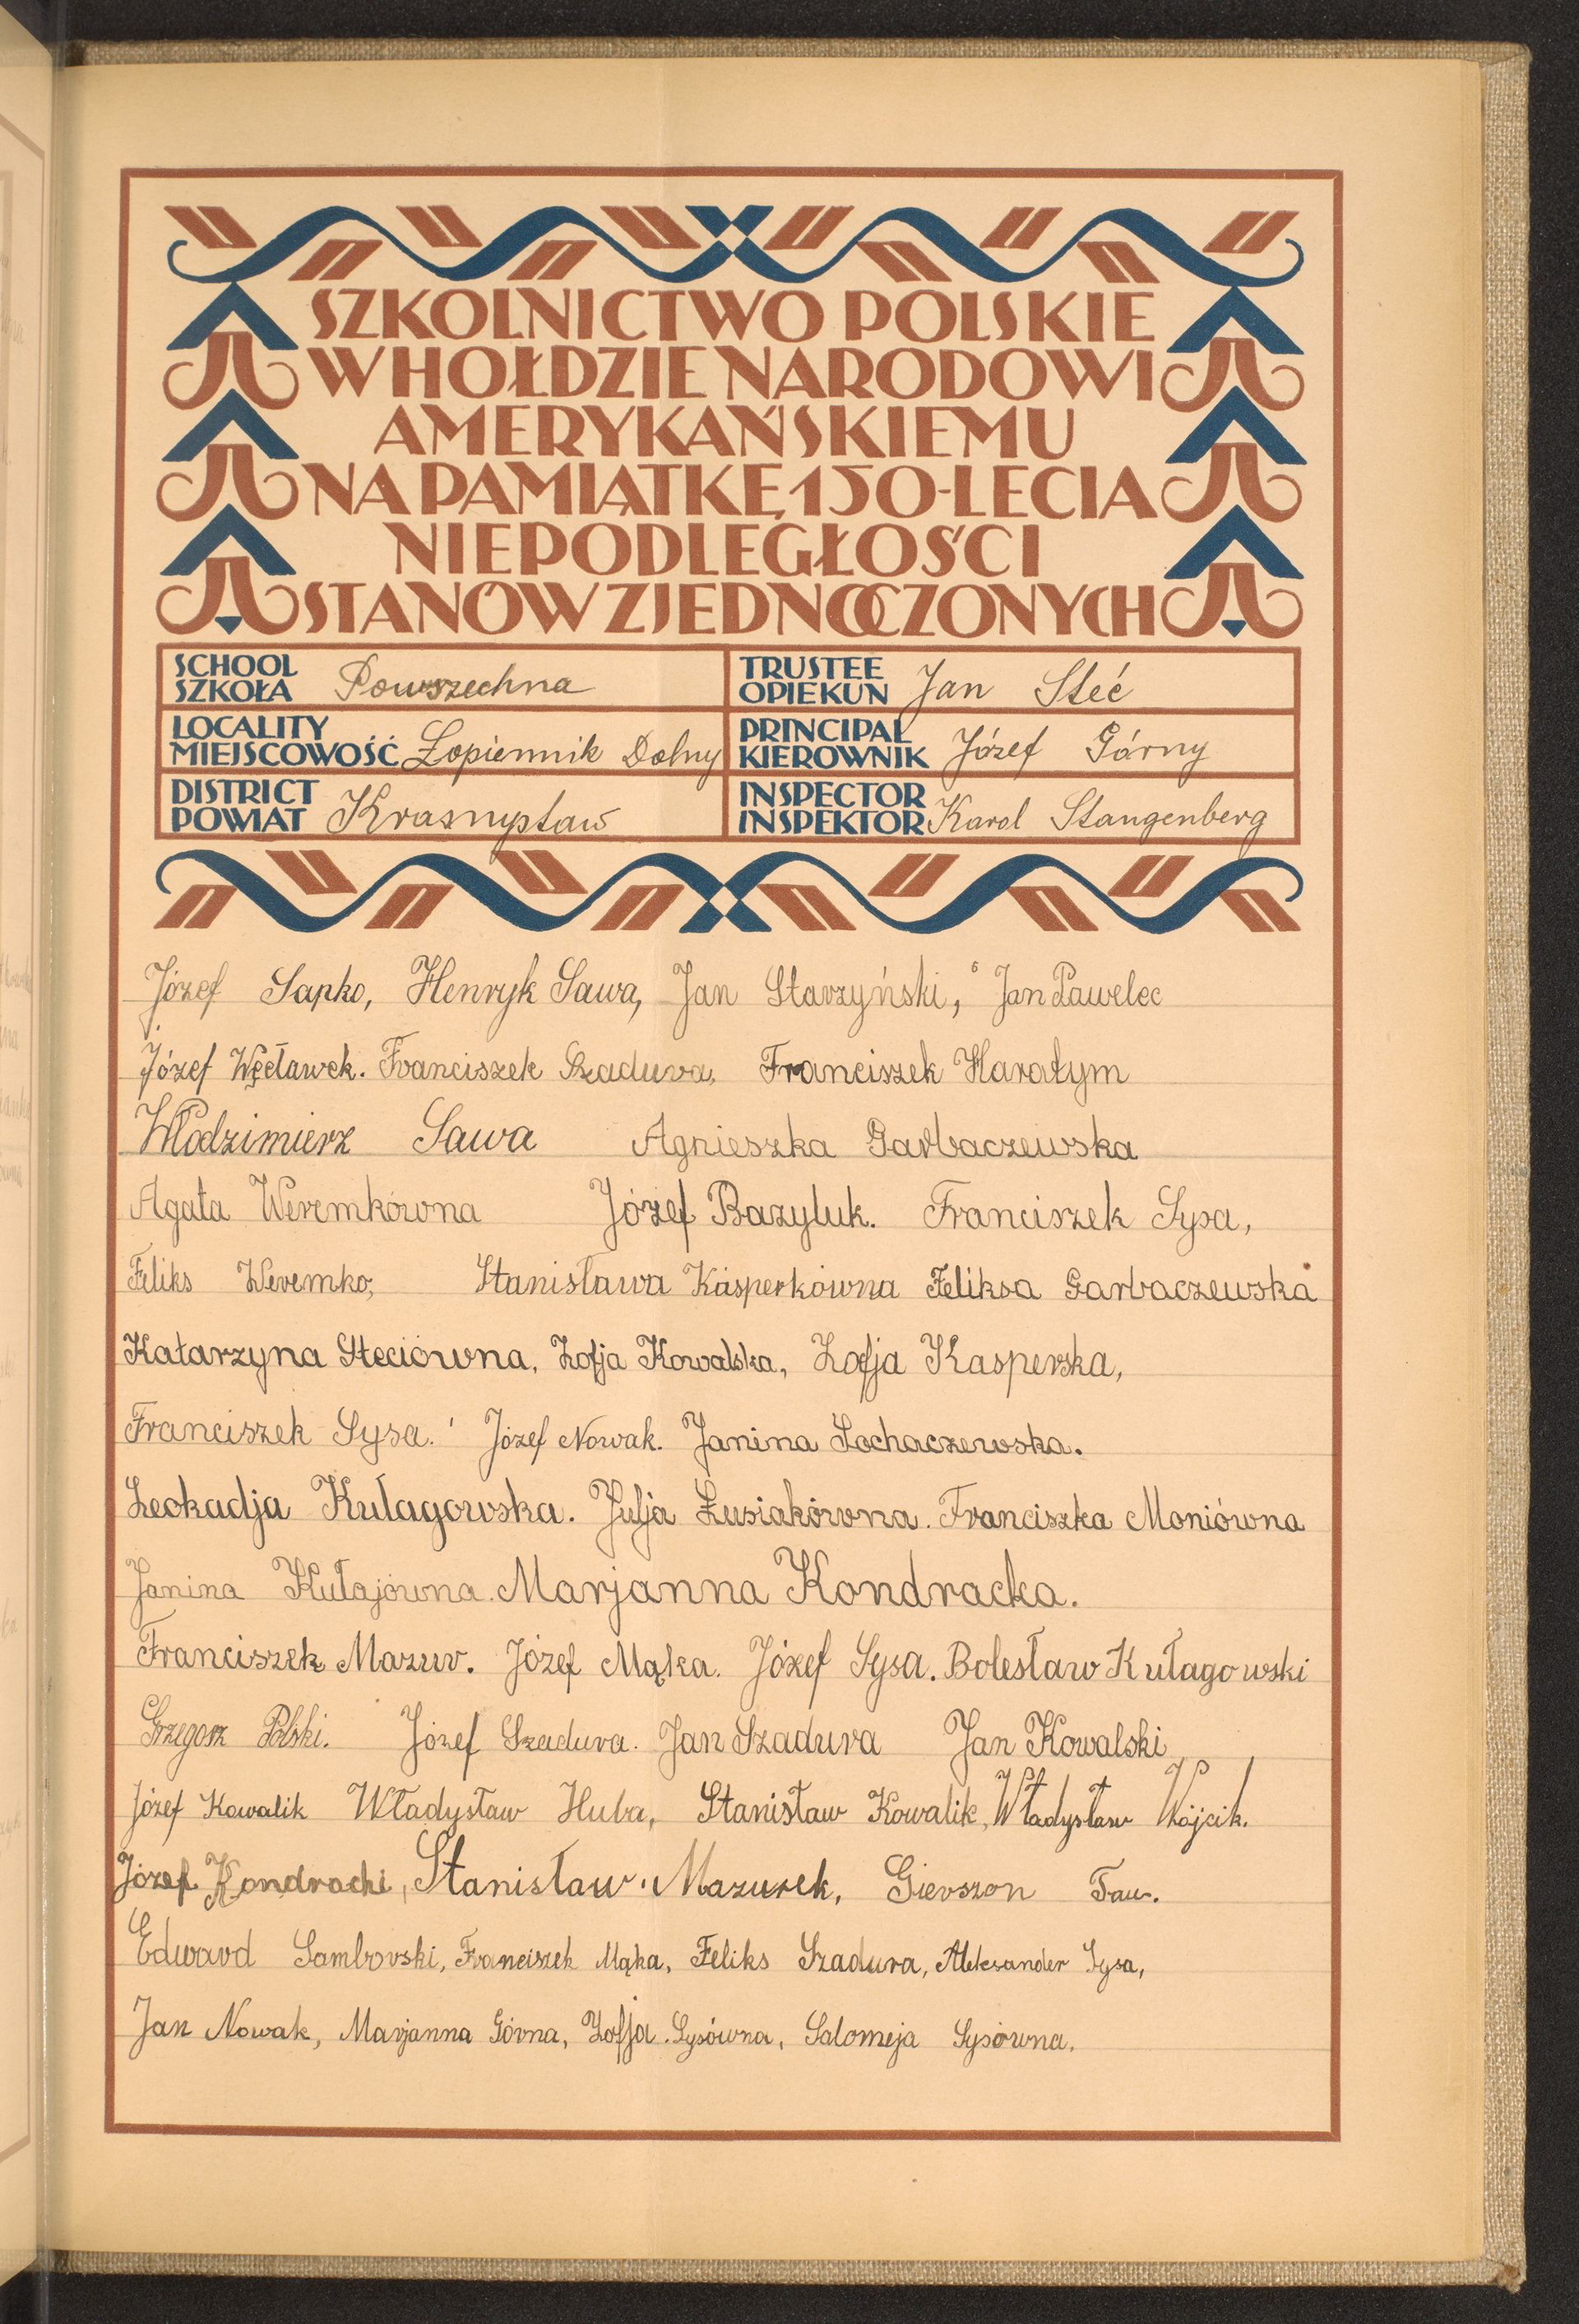 SZKOLNICTWO POLSKIE
W HOŁDZIE NARODOWI
AMERYKAŃSKIEMU
NA PAMIĄTKĘ 150-LECIA
NIEPODLEGŁOŚCI
STANÓW ZJEDNOCZONYCH
SCHOOL
SZKOŁA Powszechna
TRUSTEE
OPIEKUN Jan Steć
LOCALITY
MIEJSCOWOŚĆ Łopiennik Dolny
PRINCIPAL
KIEROWNIK Józef Górny
DISTRICT
POWIAT Krasnystaw
INSPECTOR
INSPEKTOR Karol Stangenberg
Józef Sapko, Henryk Sawa, Jan Starzyński, Jan Pawelec
Józef Węcławek. Franciszek Szadura, Franciszek Harałym
Włodzimierz Sawa Agnieszka Garbaczewska
Agata Weremkówna Józef Bazyluk. Franciszek Sysa,
Feliks Weremko, Stanisława Kasperkówna Feliksa Garbaczewska
Katarzyna Steciówna, Zofja Kowalska, Zofja Kasperska,
Franciszek Sysa. Józef Nowak. Janina Sochaczewska.
Leokadja Kułagowska. Julja Łusiakówna. Franciszka Moniówna
Janina Kułajówna. Marjanna Kondracka.
Franciszek Mazur. Józef Mąka. Józef Sysa. Bolesław Kułagowski
Grzegorz Polski. Józef Szadura. Jan Szadura Jan Kowalski
Józef Kowalik Władysław Huba, Stanisław Kowalik, Władysław Wójcik.
Józef Kondracki, Stanisław Mazurek, Gierszon Fau.
Edward Sambovski, Franciszek Mąka, Feliks Szadura, Aleksander Sysa,
Jan Nowak, Marjanna Górna, Zofja Sysówna, Salomeja Sysówna.